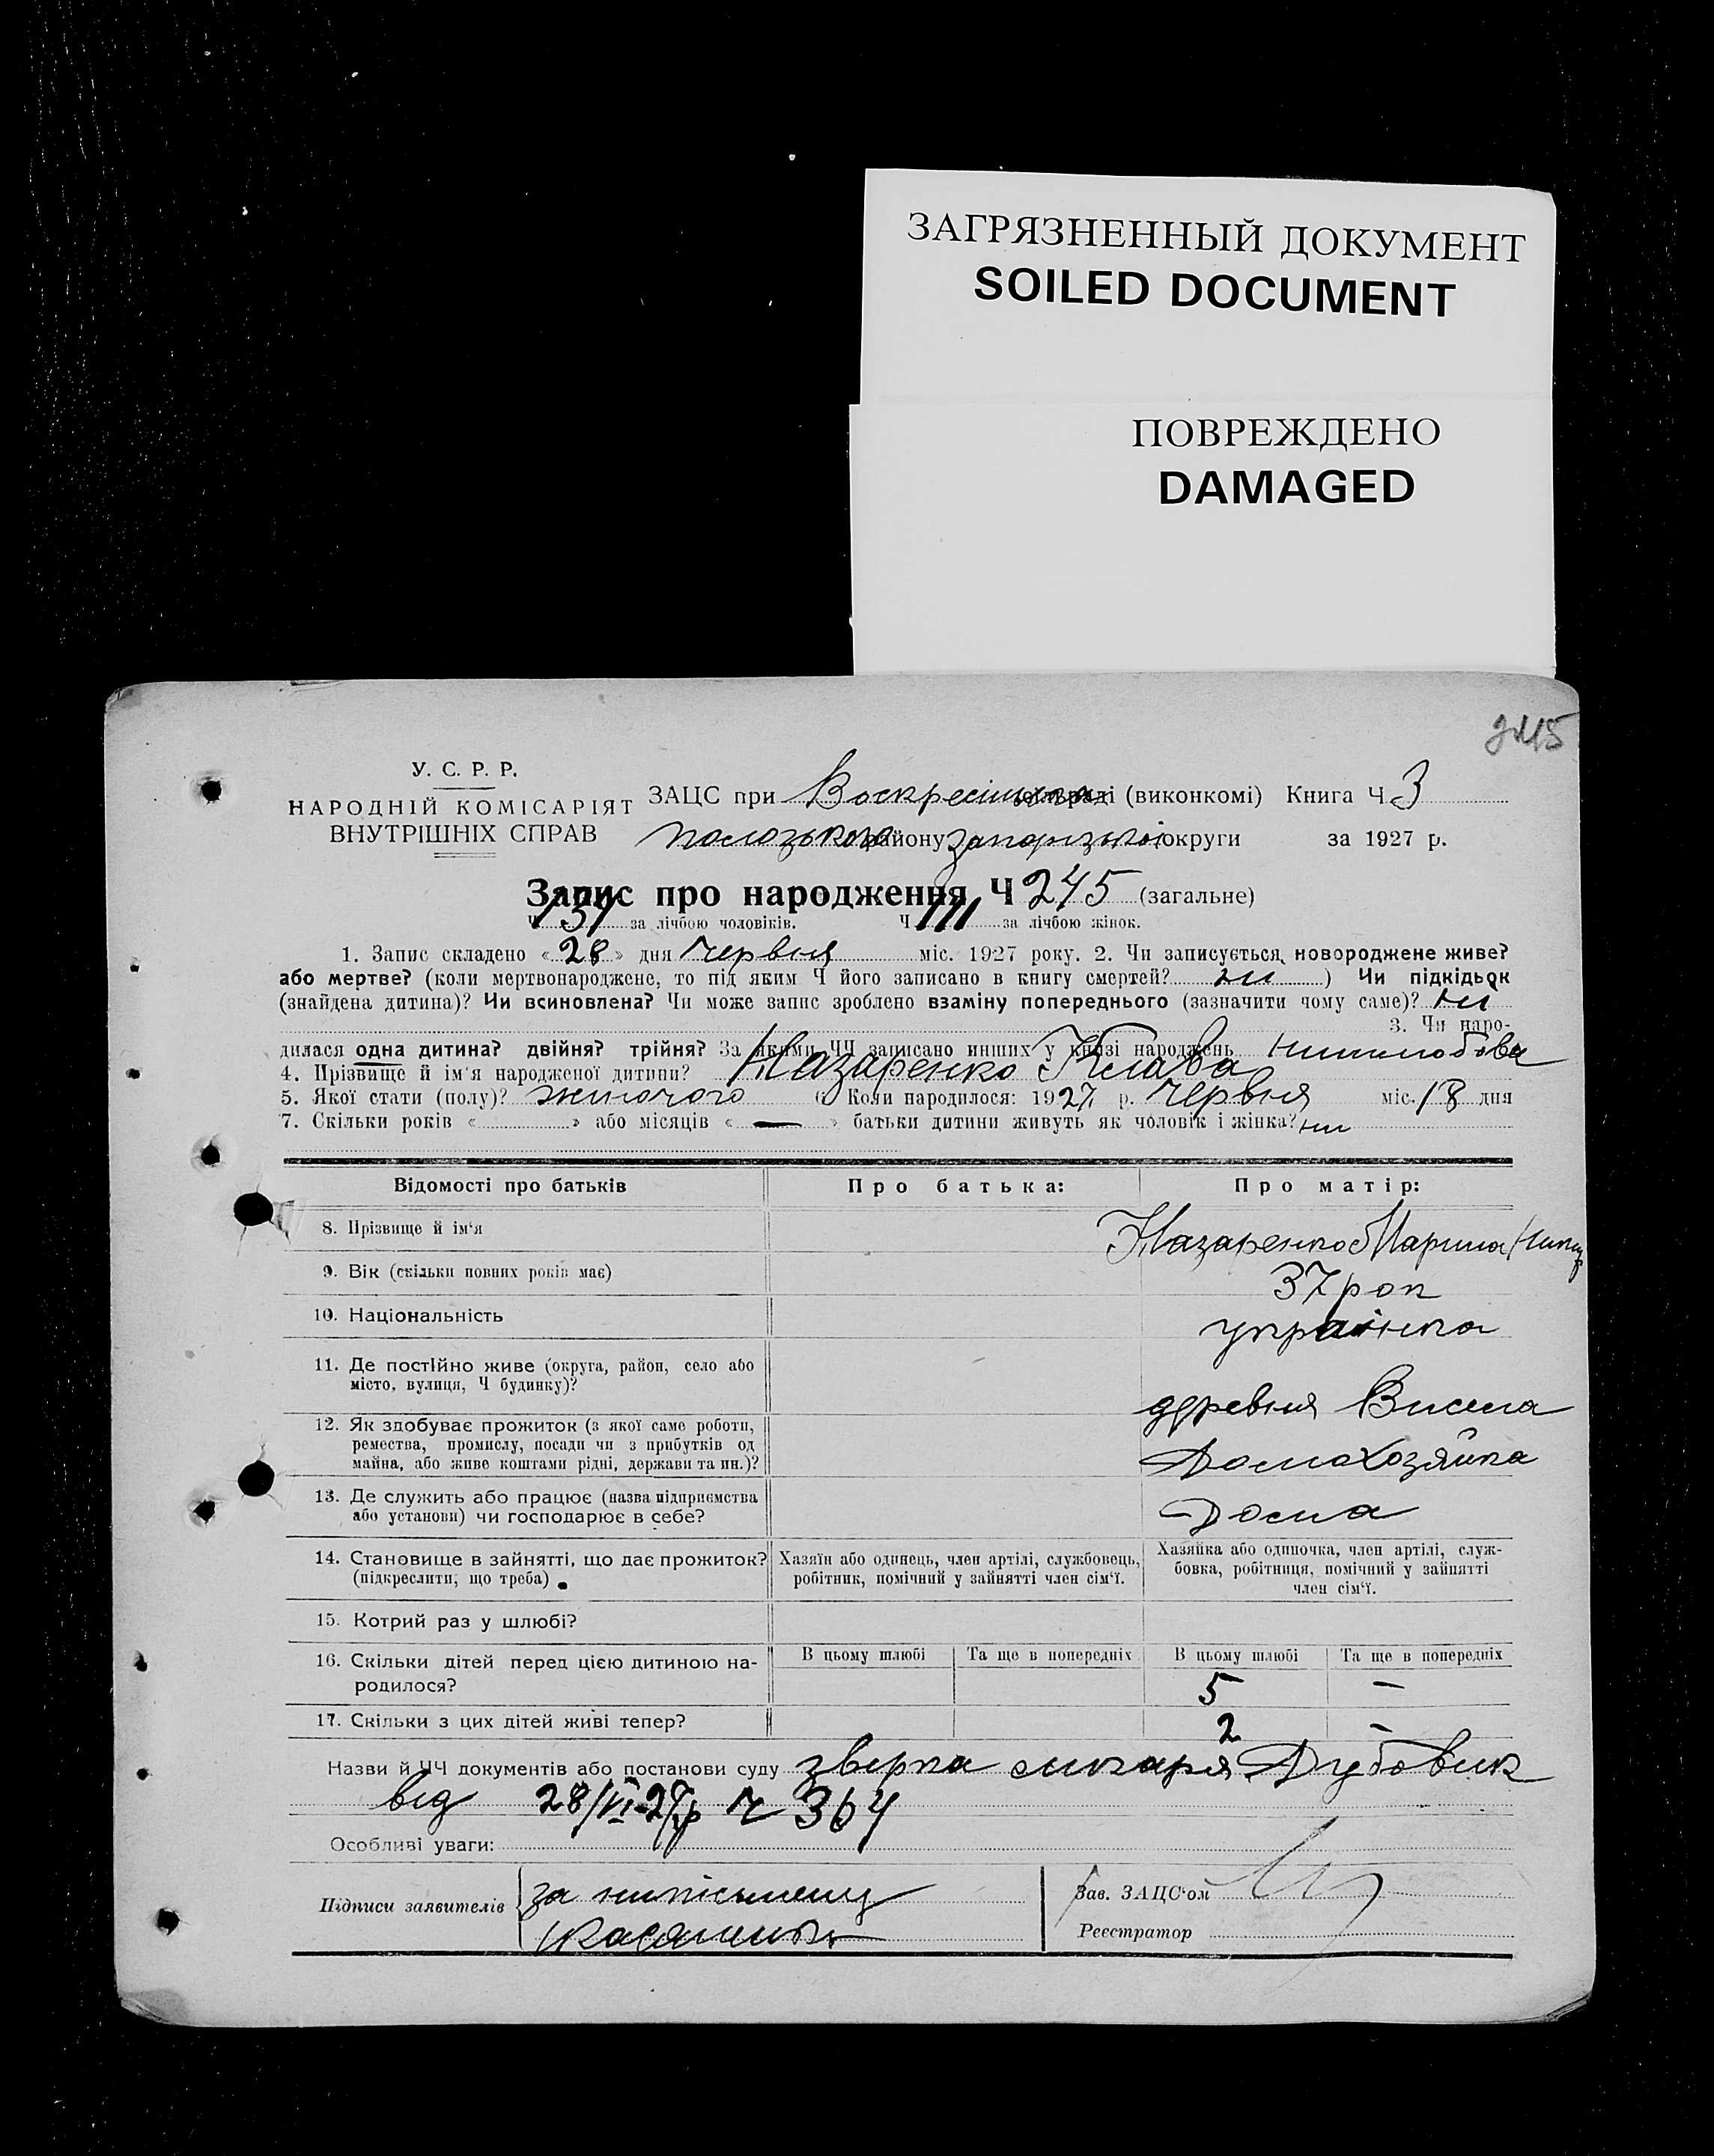 ЗАГРЯЗНЕННЫЙ ДОКУМЕНТ
SOILED DOCUMENT
ПОВРЕЖДЕНО
DAMAGED
245
У. С. Р. Р.
НАРОДНІЙ КОМІСАРІЯТ
ВНУТРІШНІХ СПРАВ
ЗАЦС при Воскресінськ сельраді (виконкомі) Книга Ч 3
пологського району запорізької округи за 1927 р.
Запис про народження Ч 245 (загальне)
Ч 134 за лічбою чоловіків. Ч 111 за лічбою жінок.
1. Запис складено « 28 » дня червня міс. 1927 року. 2. Чи записується новороджене живе?
або мертве? (коли мертвонароджене, то під яким Ч його записано в книгу смертей? ни ) Чи підкідьок
(знайдена дитина)? Чи всиновлена? Чи може запис зроблено взаміну попереднього (зазначити чому саме)? ни
3. Чи наро-
дилася одна дитина? двійня? трійня? За якими ЧЧ записано инших у книзі народжень
4. Прізвище й ім'я народженої дитини? Назаренко Клава
5. Якої стати (полу)? жиночого 6 Коли народилося: 1927 р. червня міс. 18 дня
7. Скільки років « » або місяців « — » батьки дитини живуть як чоловік і жінка? ни
Відомості про батьків Про батька: Про матір:
8. Прізвище й ім'я Назаренко Марина
9. Вік (скільки повних років має) 37 рок
10. Національність українка
11. Де постійно живе (округа, район, село або
місто, вулиця, Ч будинку)? деревня Висела
12. Як здобуває прожиток (з якої саме роботи,
ремества, промислу, посади чи з прибутків од
майна, або живе коштами рідні, держави та ин.)? Домохозяйка
13. Де служить або працює (назва підприємства
або установи) чи господарює в себе? Дома
14. Становище в зайнятті, що дає прожиток?
(підкреслити, що треба)
Хазяїн або одинець, член артілі, службовець,
робітник, помічний у зайнятті член сім'ї.
Хазяйка або одиночка, член артілі, служ-
бовка, робітниця, помічний у зайнятті
член сім'ї.
15. Котрий раз у шлюбі?
16. Скільки дітей перед цією дитиною на-
родилося?
В цьому шлюбі Та ще в попередніх В цьому шлюбі Та ще в попередніх
5 —
17. Скільки з цих дітей живі тепер? 2 —
Назви й ЧЧ документів або постанови суду лікаря Дубовик
від 28/VI-27р Ч 364
Особливі уваги:
Підписи заявителів за ниписьмену
Зав. ЗАЦС'ом
Реєстратор